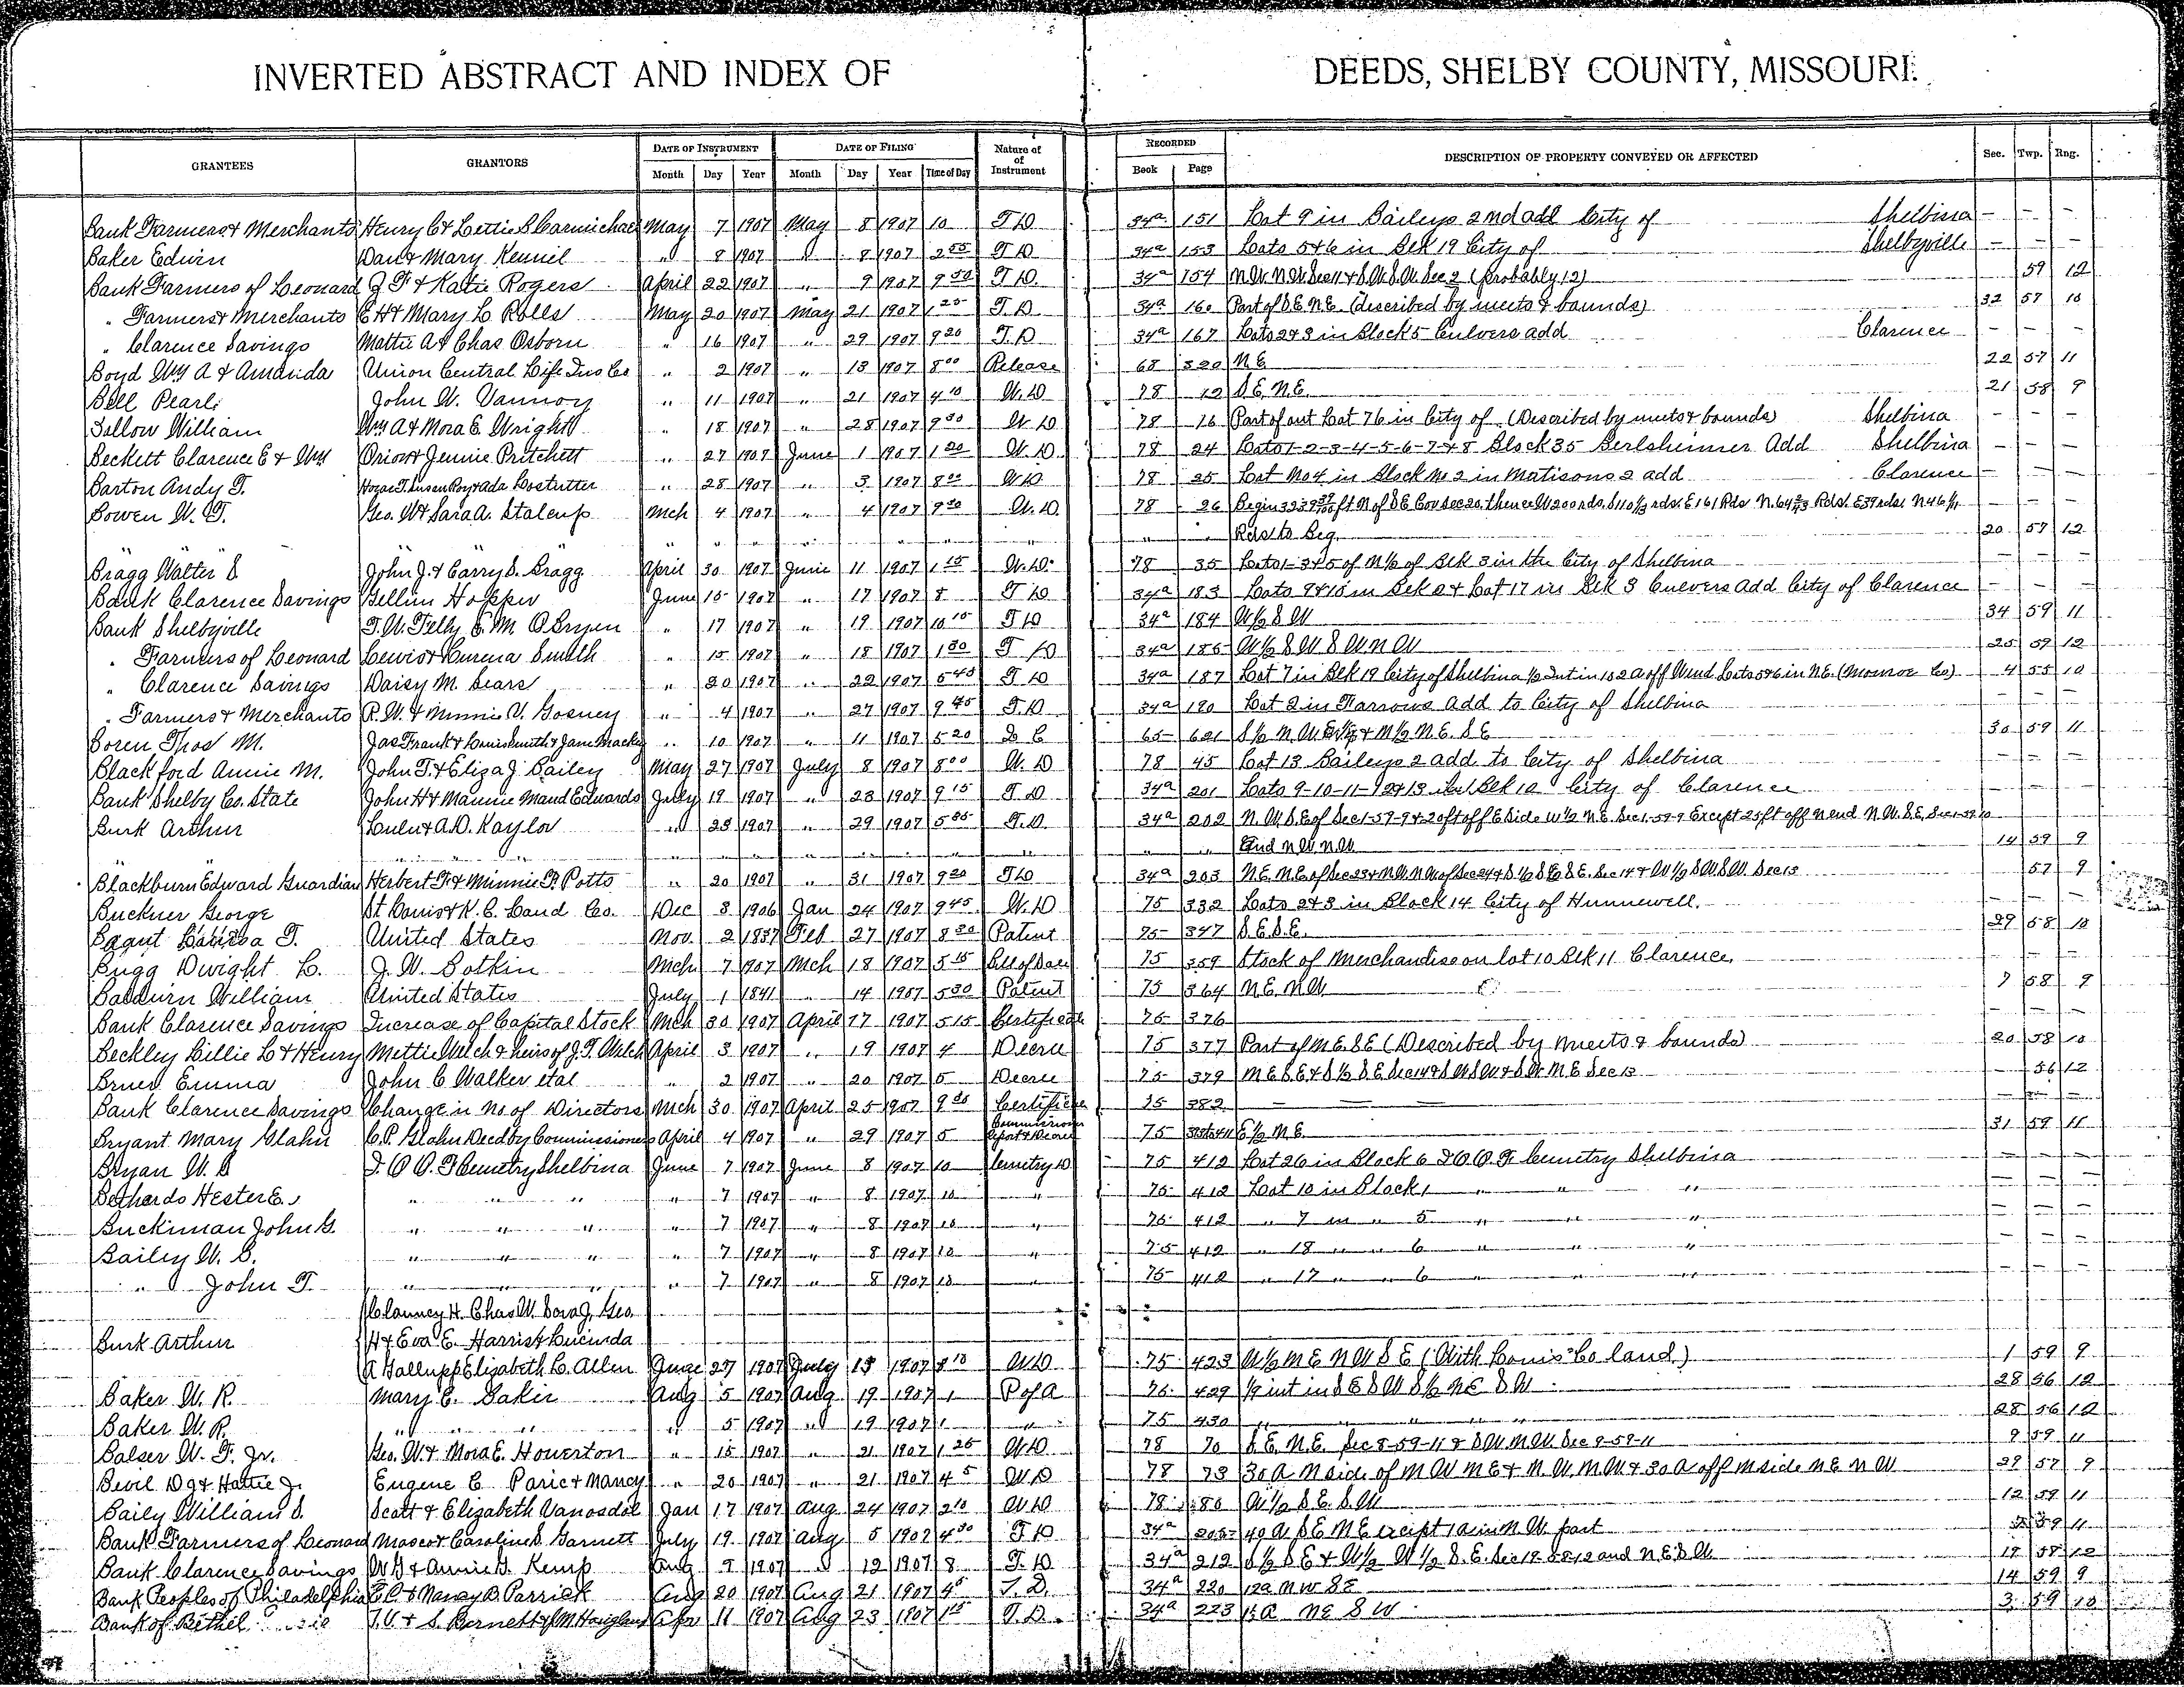 INVERTED ABSTRACT AND INDEX OF DEEDS, SHELBY COUNTY, MISSOURI.
GRANTEES GRANTORS DATE OF INSTRUMENT DATE OF FILING Nature of Instrument RECORDED DESCRIPTION OF PROPERTY CONVEYED OR AFFECTED Sec. Twp. Rng.
Month Day Year Month Day Year Time of Day Book Page
Bank Farmers & Merchants Henry C & Lettie S Carmichael May 7 1907 May 8 1907 10 T D 34a 151 Lot 9 in Baileys 2nd add City of Shelbina — — —
Baker Edwin Dan & Mary Kenniel " 8 1907 " 8 1907 2 55 T D 34a 153 Lots 5 & 6 in Blk 19 City of Shelbyville — — —
Bank Farmers of Leonard J F & Katie Rogers April 22 1907 " 9 1907 9 50 T D. 34a 154 N.W. N.W. Sec 11 & S.W. S.W. Sec 2 (probably 12) 59 12
" Farmers & Merchants E H & Mary L Rolls May 20 1907 May 21 1907 1 25 T. D 34a 160 Part of S.E. N.E. (described by meets & bounds) 32 57 10
" Clarence Savings Mattie A & Chas Osborn " 16 1907 " 29 1907 9 20 T. D 34a 167 Lots 2 & 3 in Block 5 Culvers add Clarence — — —
Boyd Wm A & Amanda Union Central Life Ins Co " 2 1907 " 13 1907 8 00 Release 68 320 N E 22 57 11
Bell Pearl John W. Vannoy " 11 1907 " 21 1907 4 10 W. D 78 12 S. E. N. E. 21 58 9
William Wm A & Mora E. Wright " 18 1907 " 28 1907 9 30 W D 78 16 Part of out Lot 76 in City of (Described by meets & bounds) Shelbina — — —
Beckett Clarence E & Wm Orion & Jennie Pritchett " 27 1907 June 1 1907 1 20 W. D. 78 24 Lots 1-2-3-4-5-6-7 & 8 Block 35 Berlsheimer Add Shelbina — — —
Barton Andy T. Ada Lostutter " 28 1907 " 3 1907 8 00 W D 78 25 Lot No 4 in Block No 2 in Matisons 2 add Clarence — — —
Bowen W. T. Geo. W & Sara A. Stalcup Mch 4 1907 " 4 1907 9 30 W. D. 78 26 ft N of S E Cor Sec 20, thence W 200 rds,
Rds to Beg. 20 57 12
Bragg Walter S John J. & Carry S. Bragg April 30 1907 June 11 1907 1 15 W. D. 78 35 Lots 1-3 & 5 of N/2 of Blk 3 in the City of Shelbina — — —
Bank Clarence Savings Hopper June 15 1907 " 17 1907 8 T D 34a 183 Lots 9 & 10 in Blk 2 & Lot 17 in Blk 3 Culvers Add City of Clarence — — —
Bank Shelbyville E. M. O Bryen " 17 1907 " 19 1907 10 15 T D 34a 184 W 1/2 S W 34 59 11
" Farmers of Leonard Lewis & Smith " 15 1907 " 18 1907 1 30 T D 34a 186 W 1/2 S W S W N W 25 59 12
" Clarence Savings Daisy M. Sears " 20 1907 " 22 1907 5 45 T D 34a 187 Lot 7 in Blk 19 City of Shelbina Lots 5 & 6 in N.E. (Monroe Co) 4 55 10
" Farmers & Merchants R. W. & Minnie V. Gosney " 4 1907 " 27 1907 9 45 T. D. 34a 190 Lot 2 in Farrows Add to City of Shelbina
Boren Thos M. Jas Frank & Louis Smith & Jane Macky " 10 1907 " 11 1907 5 20 Q C 65 621 30 59 11
Blackford Annie M. John T. & Eliza J. Bailey May 27 1907 July 8 1907 8 00 W. D 78 45 Lot 13 Baileys 2 add. to City of Shelbina — — —
Bank Shelby Co. State John H & Mannie Maud Edwards July 19 1907 " 23 1907 9 15 T D 34a 201 Lots 9-10-11-12 & 13 in Blk 10 City of Clarence — — —
Burk Arthur Lulu & A.D. Kaylor " 23 1907 " 29 1907 T. D. 34a 202 N.W. S.E. of Sec 1-59-9 & 20 ft off E Side W 1/2 N.E. Sec. 1-59-9 Except 25 ft off N end N.W. S.E.
And N.W. N.W. 14 59 9
Blackburn Edward Guardian Herbert F. & Minnie F. Potts " 20 1907 " 31 1907 9 20 T D 34a 203 57 9
Buckner George St Louis & K. C. Land Co. Dec 8 1906 Jan 24 1907 9 45 W. D 75 332 Lots 2 & 3 in Block 14 City of Hunnewell. — — —
T. United States Nov. 2 1837 Feb 27 1907 8 30 Patent 75 347 S. E. S. E. 29 58 10
Dwight L. J. W. Botkin Mch 7 1907 Mch 18 1907 5 15 Bill of Sale 75 359 Stock of Merchandise on lot 10 Blk 11 Clarence. — — —
Baldwin William United States July 1 1841 " 14 1907 5 30 Patent 75 364 N. E. N. W 7 58 9
Bank Clarence Savings Increase of Capital Stock Mch 30 1907 April 17 1907 5 15 Certificate 75 376
Beckley Lillie L & Henry Mettie Welch & heirs of J. F. Welch April 3 1907 " 19 1907 4 Decree 75 377 Part of N.E. S E (Described by meets & bounds) 20 58 10
Emma John C Walker etal " 2 1907 " 20 1907 5 Decree 75 379 56 12
Bank Clarence Savings Change in No. of Directors Mch 30 1907 April 25 1907 9 30 Certificate 75 382 — — —
Bryant Mary Glahn C. P. Glahn Decd by Commissioners April 4 1907 " 29 1907 5 Commissioner Report & Decree 75 E 1/2 N. E. 31 59 11
Bryan W. S I. O O. F Cemetry Shelbina June 7 1907 June 8 1907 10 Cemetry D 75 412 Lot 26 in Block 6 I O O. F Cemetry Shelbina — — —
Bethards Hester E. " " " " 7 1907 " 8 1907 10 " 75 412 Lot 10 in Block 1 " " " — — —
Buckman John G. " " " " 7 1907 " 8 1907 10 " 75 412 " 7 in " 5 " " " — — —
Bailey W. S. " " " " 7 1907 " 8 1907 10 " 75 412 " 18 " " 6 " " " — — —
" John T. " " " " 7 1907 " 8 1907 10 " 75 412 " 17 " " 6 " " " — — —
Clanncy H. Chas W. Dora J, Geo.
Burk Arthur H & Eva E. Harris & Lucinda
A Gallupp Elizabeth C. Allen June 27 1907 July 13 1907 W D 75 423 W 1/2 N E N W S E (With Louis Co land) 1 59 9
Baker W. R. Mary E. Baker Aug 5 1907 Aug 19 1907 1 P of A 75 429 1/9 int in S E S W S 1/2 N E S W 28 56 12
Baker W. R. " " " 5 1907 " 19 1907 1 " 75 430 " " " 28 56 12
Balser W. F. Jr. Geo. W. & Mora E. Howerton " 15 1907 " 21 1907 1 25 W D 78 70 S. E. N. E. Sec 8-59-11 & S W N W Sec 9-59-11 9 59 11
Bevil D G & Hattie J. Eugene C Paric & Nancy " 20 1907 " 21 1907 4 5 W D 78 73 30 A N side of N W N E & N. W. N. W & 30 A off N side N E N W 29 57 9
Baily William S. Scott & Elizabeth Vanosdol Jan 17 1907 Aug 24 1907 2 10 W D 78 80 W 1/2 S. E. S. W 12 59 11
Bank Farmers of Leonard & Caroline Garnett July 19 1907 Aug 5 1907 4 30 T D 34a 40 A S E N E except 1 a in N. W. part 59 11
Bank Clarence Savings W G & Annie G. Kemp Aug 9 1907 " 12 1907 8 T. D 34a 212 S 1/2 S E & W 1/2 W 1/2 S. E. Sec 18 58 12 and N E S W 18 58 12
Bank Peoples of Philadelphia E C & Nancy B Parrick Aug 20 1907 Aug 21 1907 4 5 T. D. 34a 220 12a N W S E 14 59 9
Bank of Bethel T. V. & S. Burnett & J M Hoagland Apr 11 1907 Aug 23 1907 T. D. 34a 223 N E S W 3 59 10